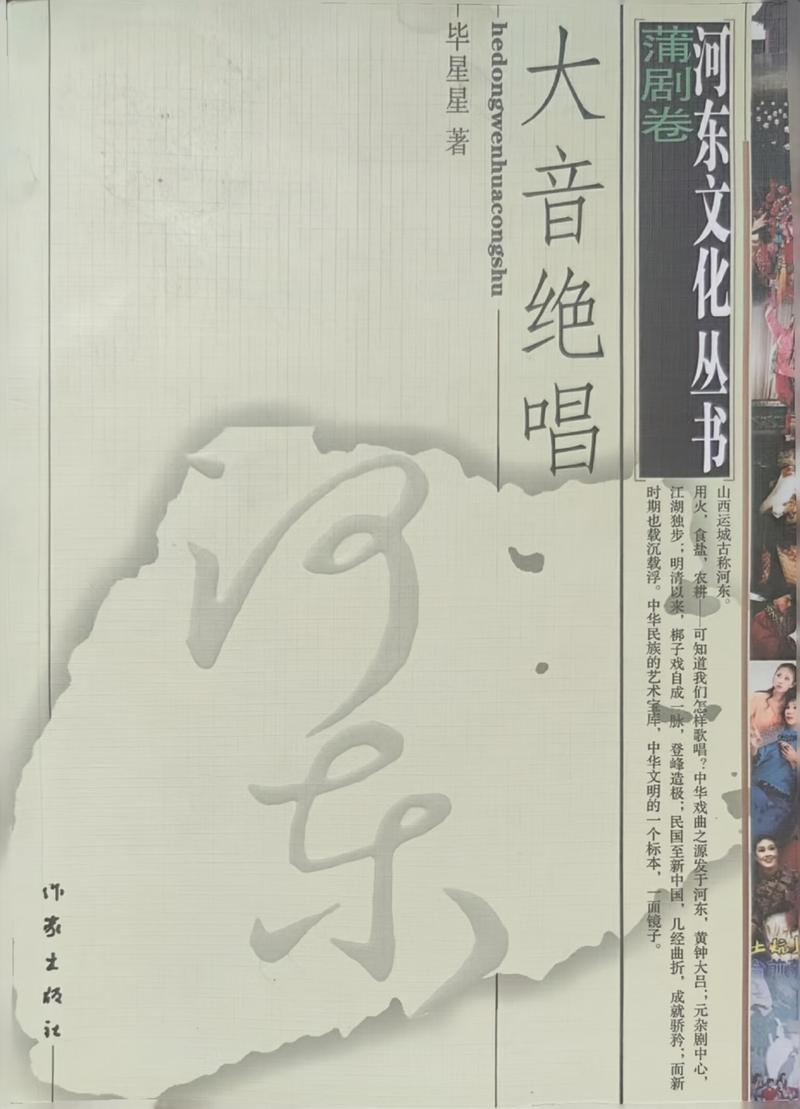 河东文化丛书
蒲剧卷
山西运城古称河东。
用火，食盐，农耕——可知道我们怎样歌唱？中华戏曲之源发于河东，黄钟大吕；元杂剧中心，
江湖独步；明清以来，梆子戏自成一脉，登峰造极；民国至新中国，几经曲折，成就骄矜；而新
时期也载沉载浮。中华民族的艺术宝库，中华文明的一个标本，一面镜子。
大音绝唱
hedongwenhuacongshu
毕星星 著
河东
作家出版社